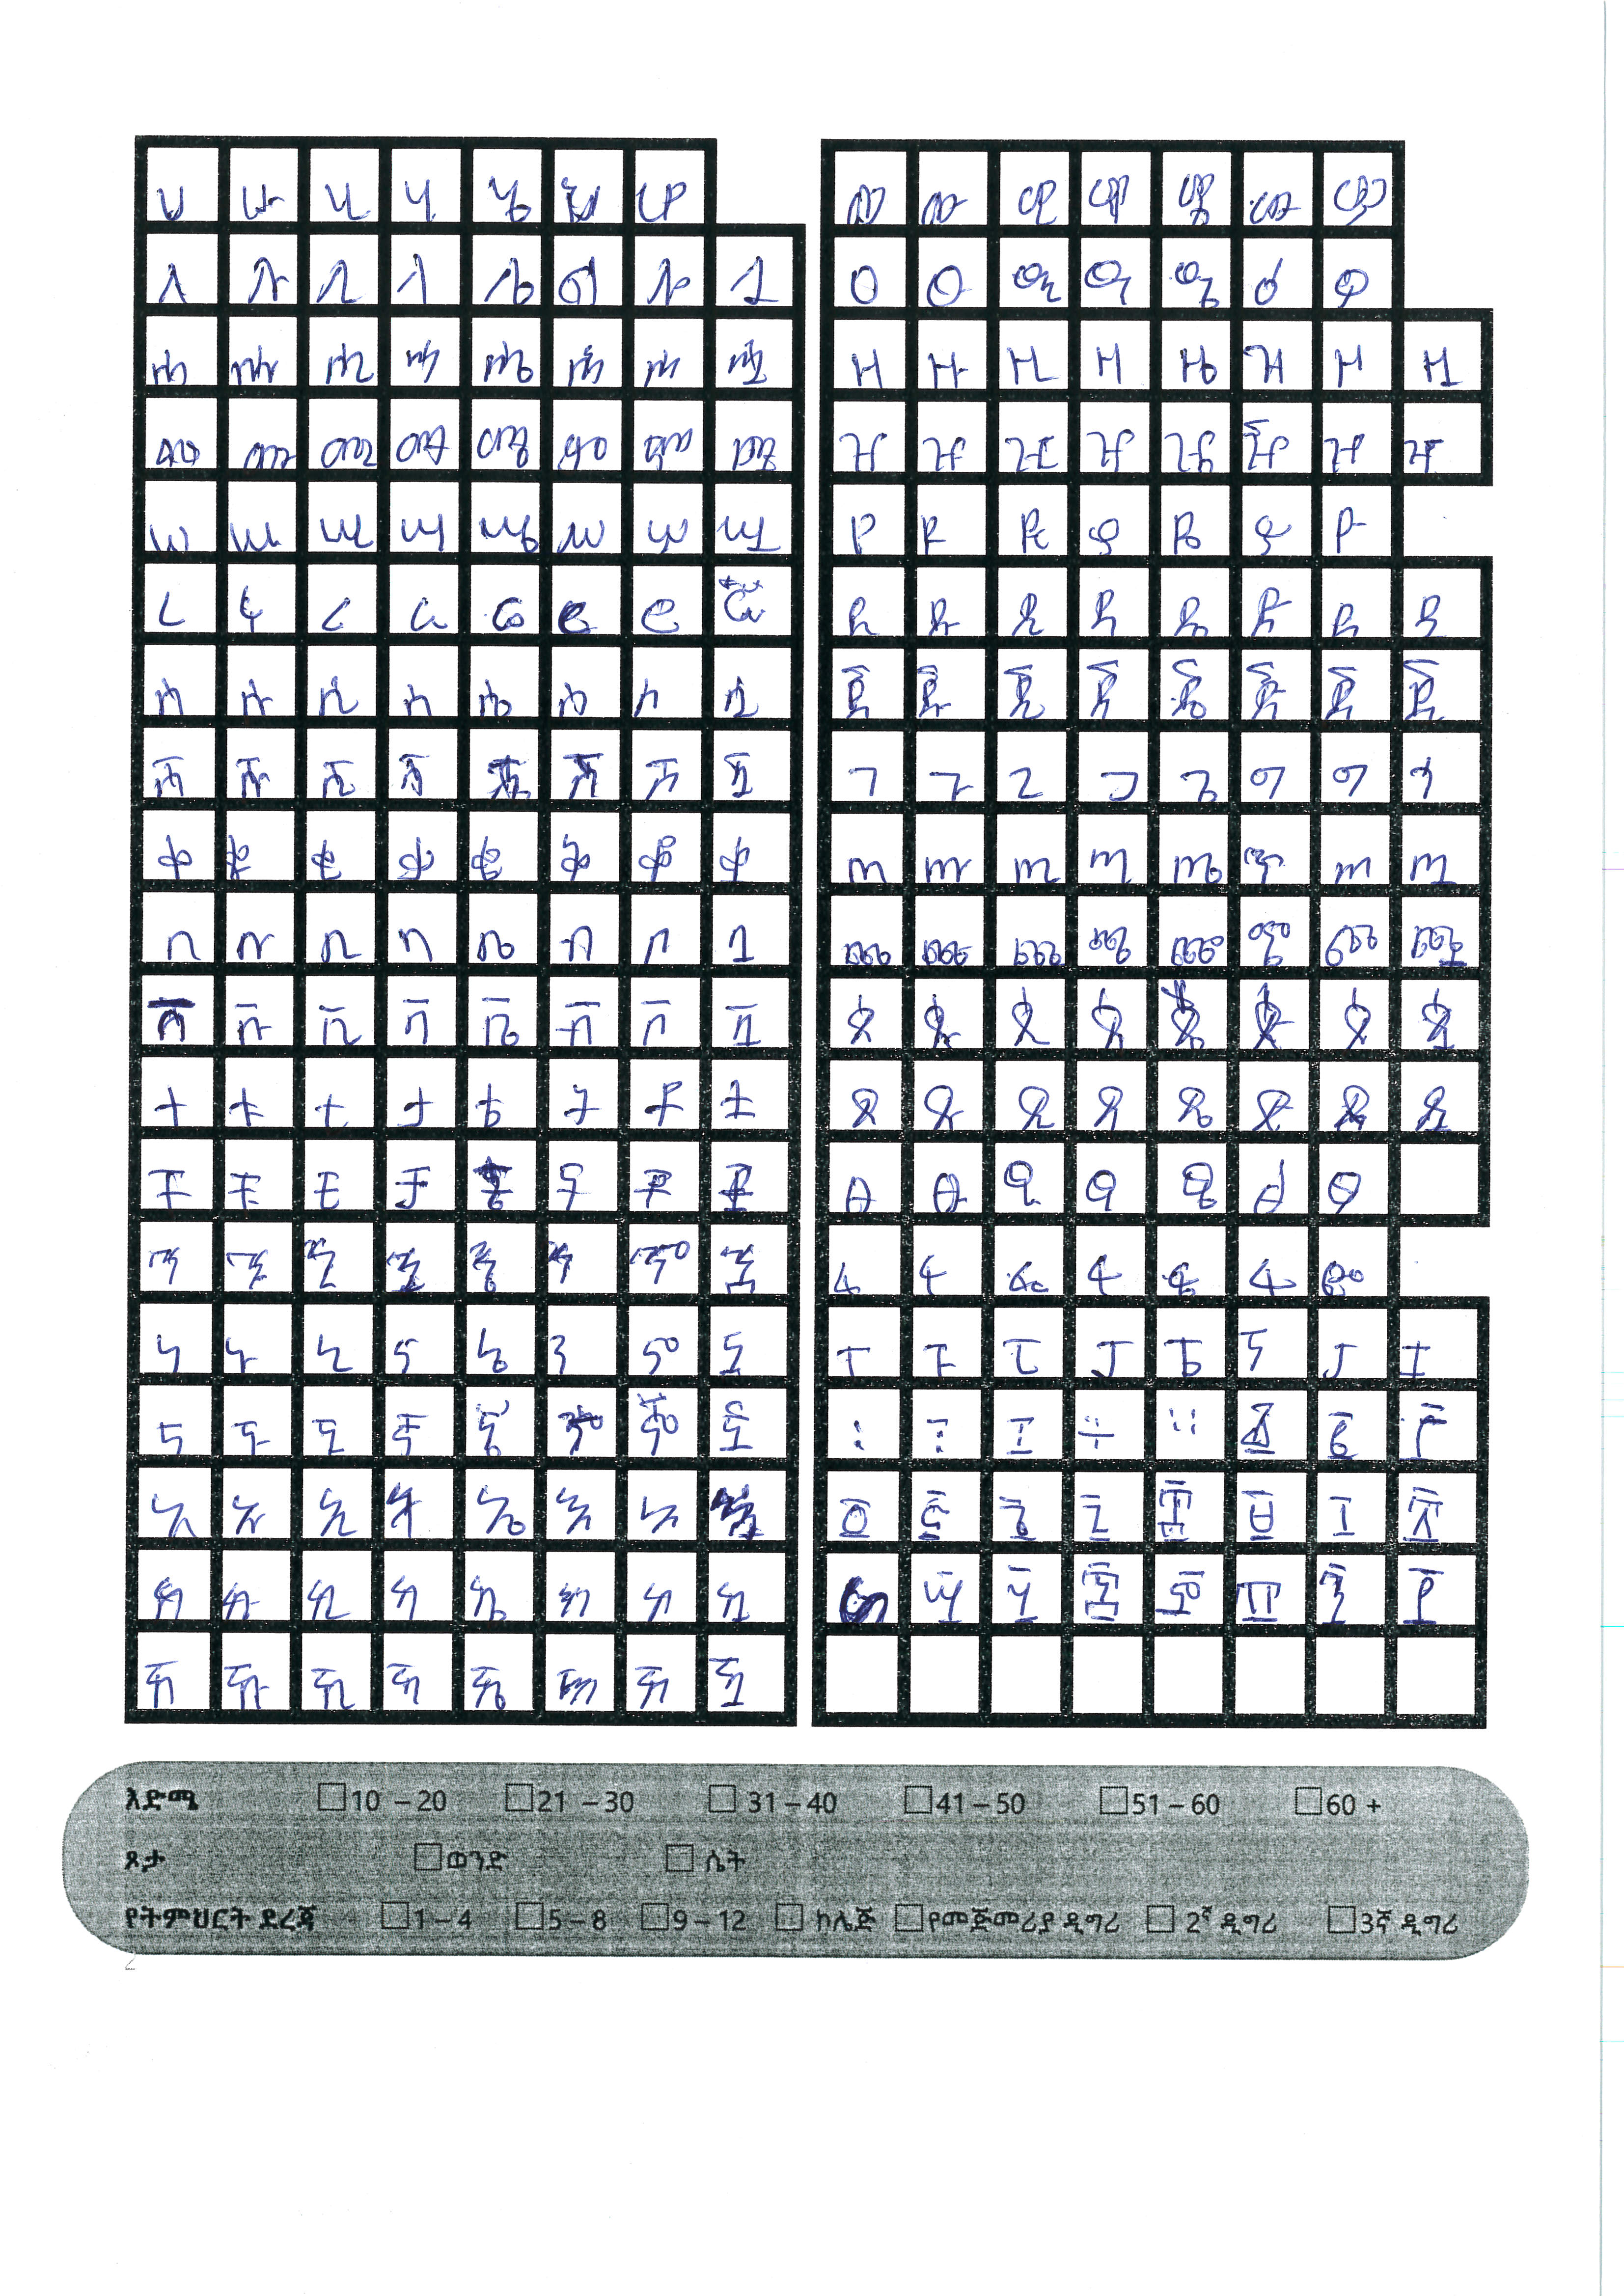 ሀ ሁ ሂ ሃ ሄ ህ ሆ
ለ ሉ ሊ ላ ሌ ል ሎ ሏ
ሐ ሑ ሒ ሓ ሔ ሕ ሖ ሗ
መ ሙ ሚ ማ ሜ ም ሞ ሟ
ሠ ሡ ሢ ሣ ሤ ሥ ሦ ሧ
ረ ሩ ሪ ራ ሬ ር ሮ ሯ
ሰ ሱ ሲ ሳ ሴ ስ ሶ ሷ
ሸ ሹ ሺ ሻ ሼ ሽ ሾ ሿ
ቀ ቁ ቂ ቃ ቄ ቅ ቆ ቋ
በ ቡ ቢ ባ ቤ ብ ቦ ቧ
ቨ ቩ ቪ ቫ ቬ ቭ ቮ ቯ
ተ ቱ ቲ ታ ቴ ት ቶ ቷ
ቸ ቹ ቺ ቻ ቼ ች ቾ ቿ
ኀ ኁ ኂ ኃ ኄ ኅ ኆ ኋ
ነ ኑ ኒ ና ኔ ን ኖ ኗ
ኘ ኙ ኚ ኛ ኜ ኝ ኞ ኟ
አ ኡ ኢ ኣ ኤ እ ኦ
ከ ኩ ኪ ካ ኬ ክ ኮ ኳ
ኸ ኹ ኺ ኻ ኼ ኽ ኾ ዃ
ወ ዉ ዊ ዋ ዌ ው ዎ
ዐ ዑ ዒ ዓ ዔ ዕ ዖ
ዘ ዙ ዚ ዛ ዜ ዝ ዞ ዟ
ዠ ዡ ዢ ዣ ዤ ዥ ዦ ዧ
የ ዩ ዪ ያ ዬ ይ ዮ
ደ ዱ ዲ ዳ ዴ ድ ዶ ዷ
ጀ ጁ ጂ ጃ ጄ ጅ ጆ ጇ
ገ ጉ ጊ ጋ ጌ ግ ጎ ጓ
ጠ ጡ ጢ ጣ ጤ ጥ ጦ ጧ
ጨ ጩ ጪ ጫ ጬ ጭ ጮ ጯ
ጰ ጱ ጲ ጳ ጴ ጵ ጶ ጷ
ጸ ጹ ጺ ጻ ጼ ጽ ጾ ጿ
ፀ ፁ ፂ ፃ ፄ ፅ ፆ
ፈ ፉ ፊ ፋ ፌ ፍ ፎ
ፐ ፑ ፒ ፓ ፔ ፕ ፖ ፗ
፡ ፣ ፤ ÷ ። ፩ ፪ ፫
፬ ፭ ፮ ፯ ፰ ፱ ፲ ፳
፵ ፶ ፷ ፸ ፹ ፺ ፻
እድሜ 10 – 20 21 – 30 31 – 40 41 – 50 51 – 60 60 +
ጾታ ወንድ ሴት
የትምህርት ደረጃ 1 – 4 5 – 8 9 – 12 ኮሌጅ የመጀመሪያ ዲግሪ 2ኛ ዲግሪ 3ኛ ዲግሪ